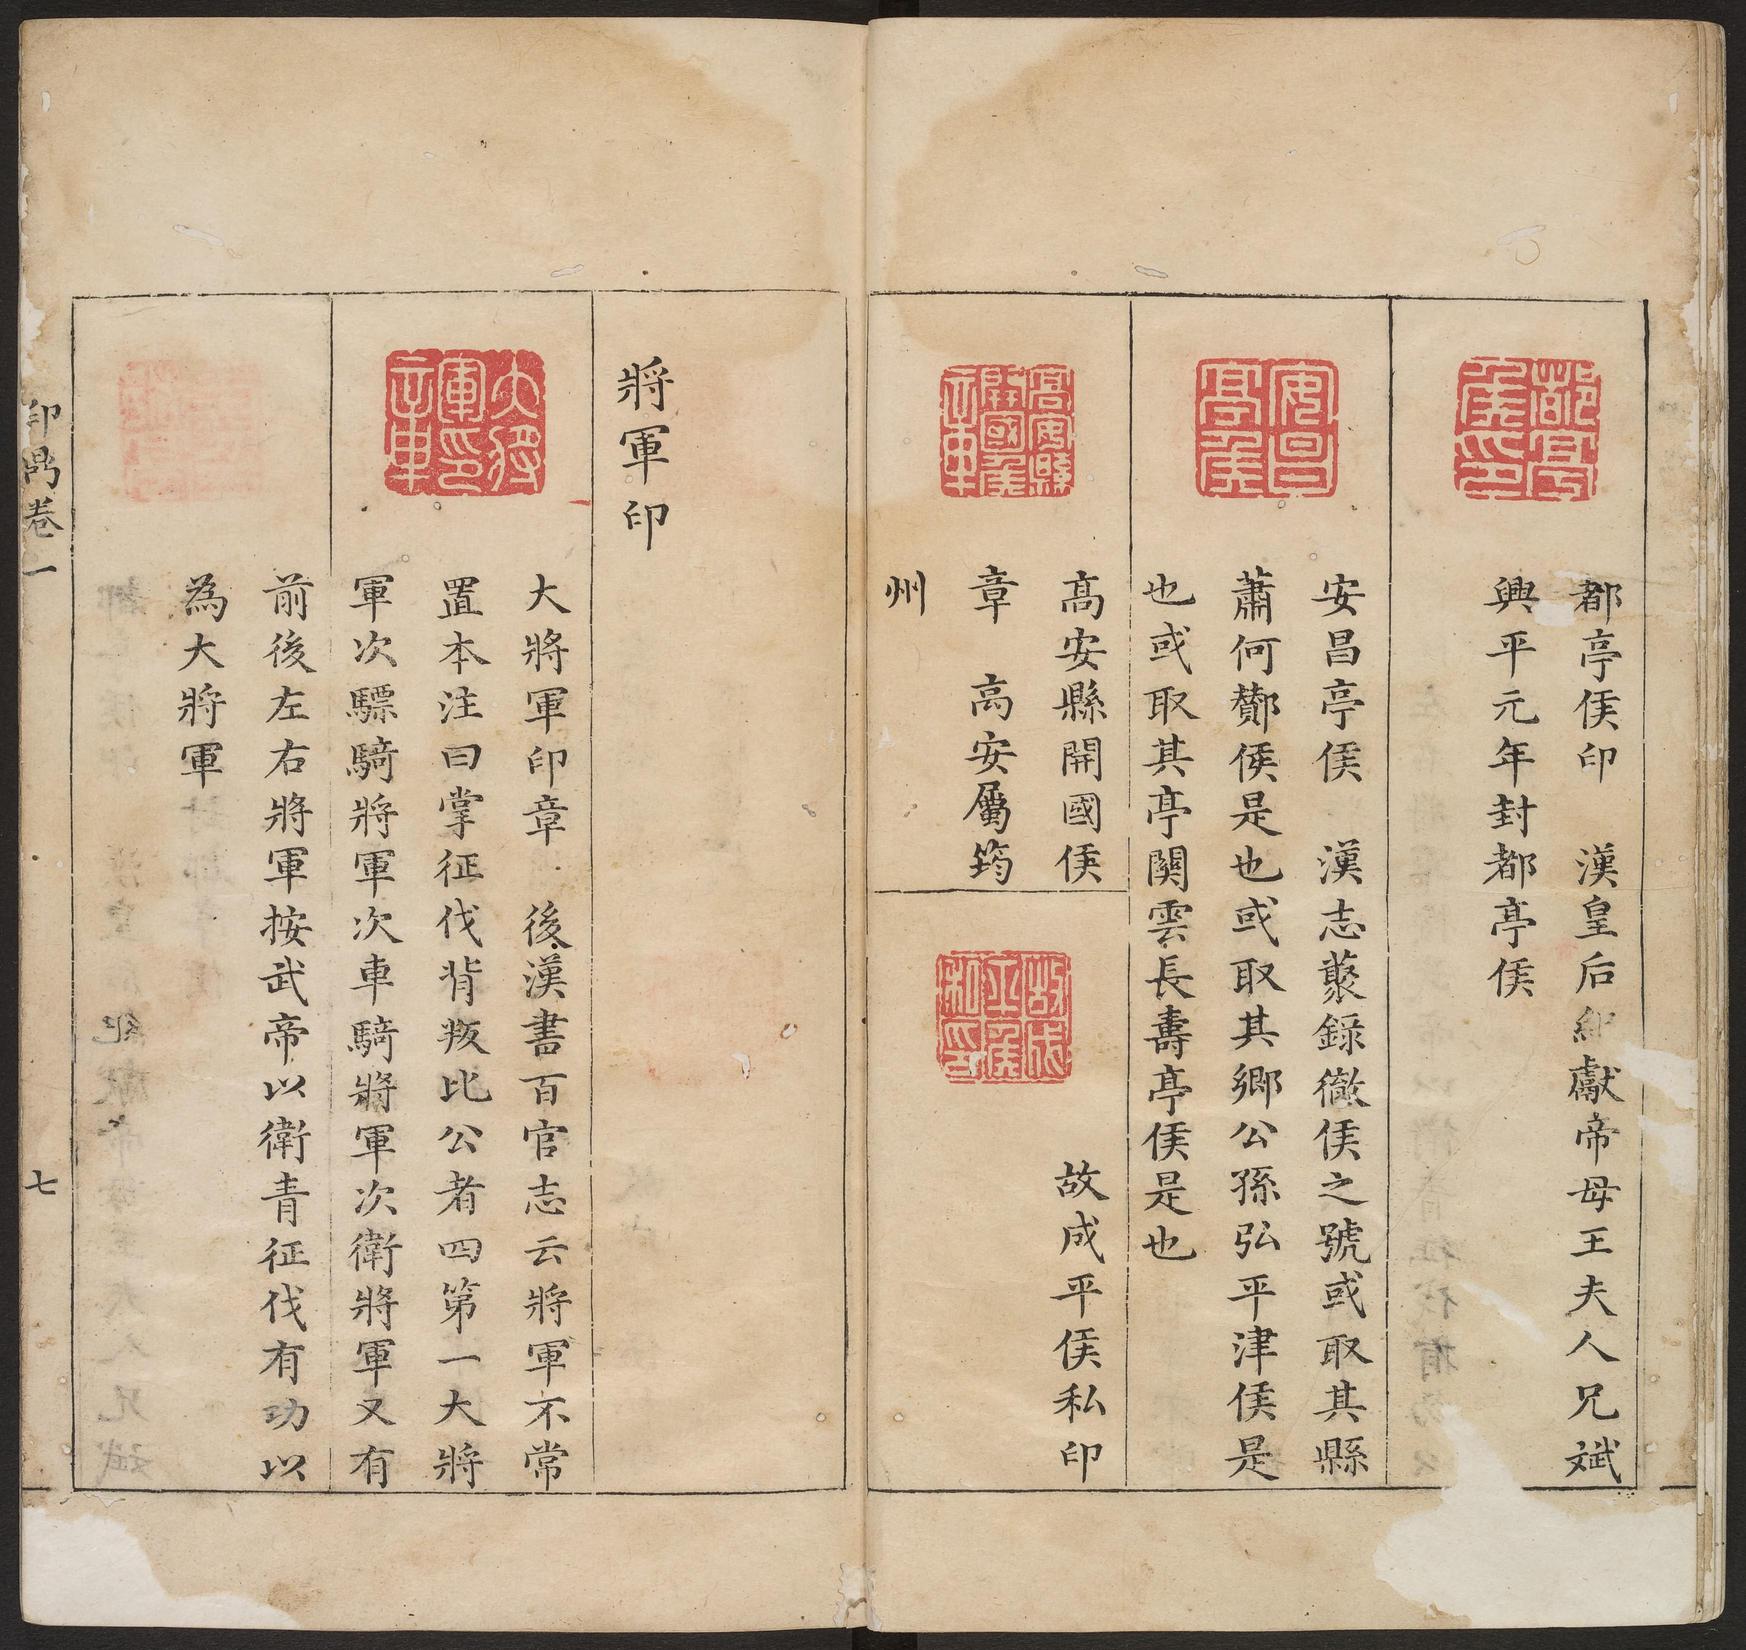 都亭侯印　漢皇后紀獻帝母王夫人兄斌
興平元年封都亭侯
安昌亭侯　漢志藂錄徹侯之號或取其縣
蕭何酇侯是也或取其鄉公孫弘平津侯是
也或取其亭關雲長壽亭侯是也
高安縣開國侯
章　高安屬筠
州
故成平侯私印
將軍印
大將軍印章　後漢書百官志云將軍不常
置本注曰掌征伐背叛比公者四第一大將
軍次驃騎將軍次車騎將軍次衛將軍又有
前後左右將軍按武帝以衛青征伐有功以
為大將軍
卷一
七